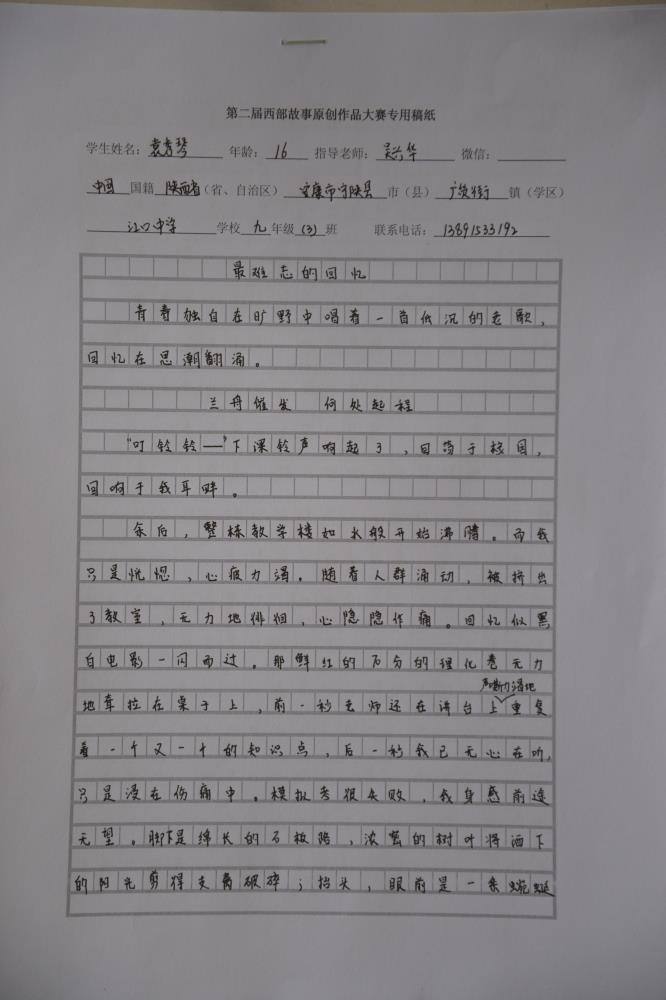 第二届西部故事原创作品大赛专用稿纸
学生姓名:袁秀琴 年龄:16 指导老师:吴兴华 微信:
中国 国籍 陕西省(省、自治区) 安康市宁陕县 市(县) 广货街 镇(学区)
江口中学 学校 九 年级(3)班 联系电话:13891533192
最难忘的回忆
青春独自在旷野中唱着一首低沉的老歌,
回忆在思潮翻涌。
兰舟催发 何处起程
“叮铃铃——”下课铃声响起了,回荡于校园,
回响于我耳畔。
余后,整栋教学楼如水般开始沸腾。而我
只是恍惚,心疲力竭。随着人群涌动,被挤出
了教室,无力地徘徊,心隐隐作痛。回忆似黑
白电影一闪而过。那鲜红的百分的理化卷无力
声嘶力竭地
地耷拉在桌子上,前一秒老师还在讲台上重复
着一个又一个的知识点,后一秒我已无心在听,
只是浸在伤痛中。模拟考很失败,我身感前途
无望。脚下是绵长的石板路,浓密的树叶将洒下
的阳光剪得支离破碎;抬头,眼前是一条蜿蜒